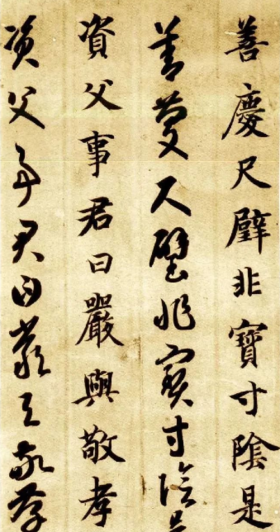 善慶尺璧非寶寸陰是
善慶尺璧非寶寸陰是
資父事君曰嚴與敬孝
資父事君曰嚴與敬孝